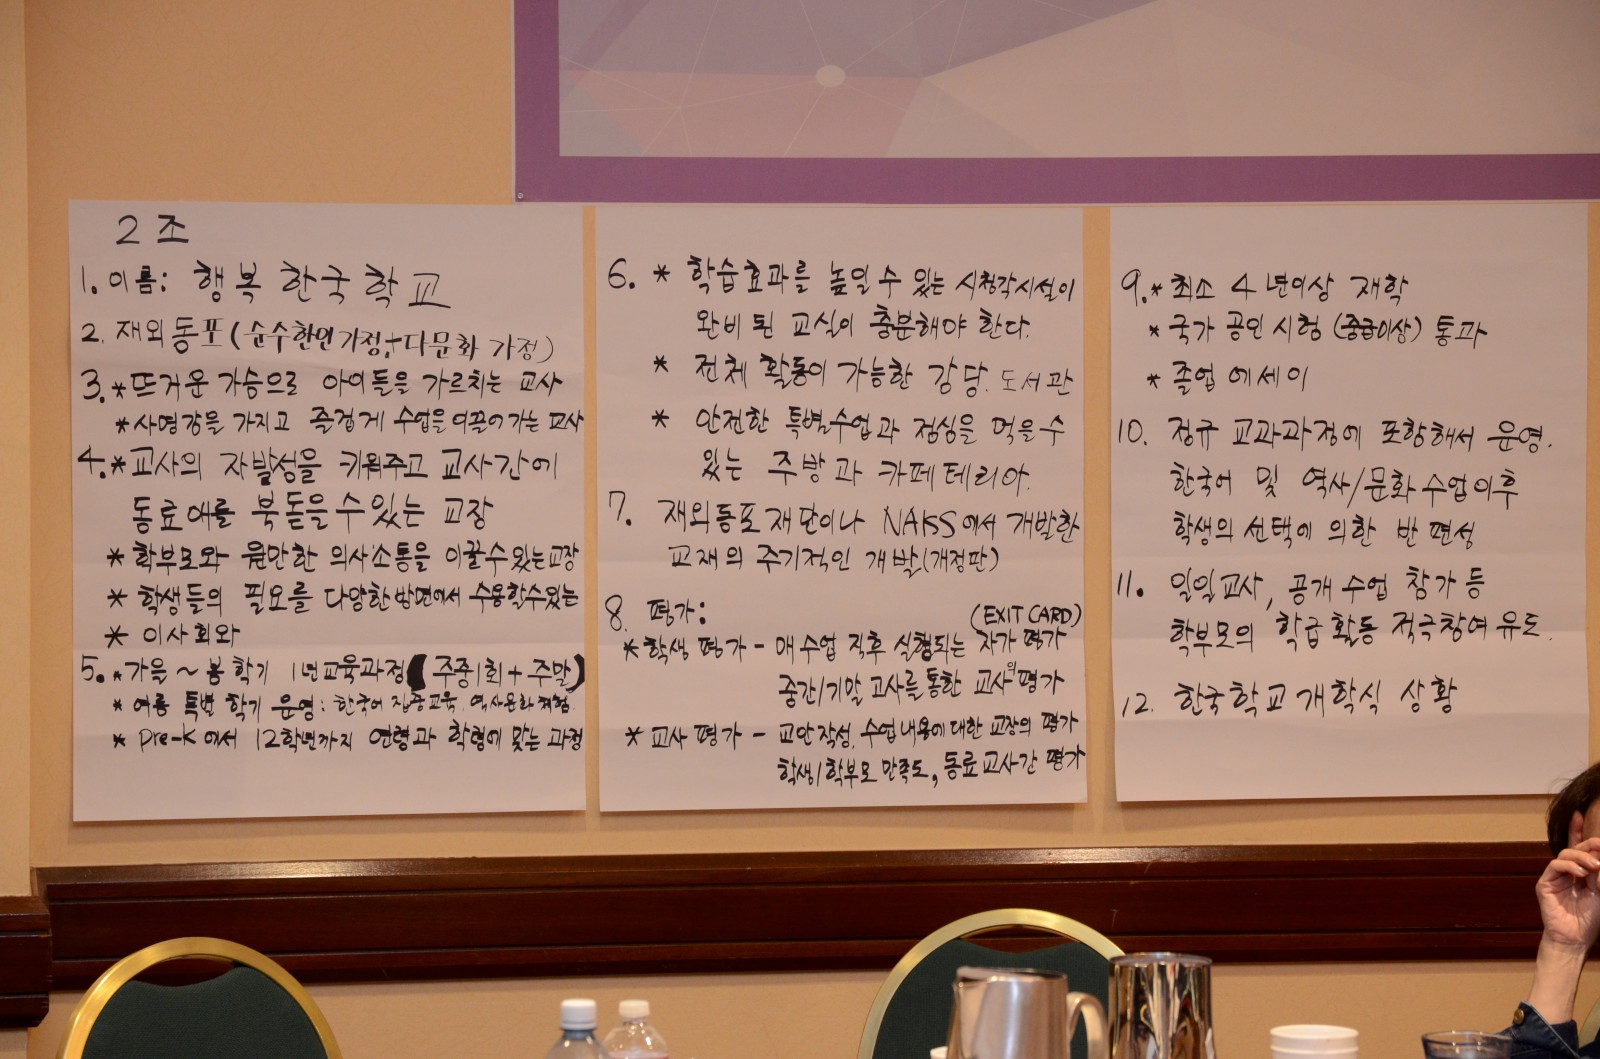 2 조
1. 이름: 행복 한국 학교
2. 재외동포 (순수한인가정+다문화 가정)
3. * 뜨거운 가슴으로 아이들을 가르치는 교사
* 사명감을 가지고 즐겁게 수업을 이끌어가는 교사
4. * 교사의 자발성을 키워주고 교사간에
동료애를 북돋을 수 있는 교장
* 학부모와 원만한 의사소통을 이끌수있는교장
* 학생들의 필요를 다양한방면에서 수용할수있는
* 이사회와
5. * 가을 ~ 봄 학기 1년교육과정 (주중1회 + 주말)
* 여름 특별 학기 운영: 한국어 집중교육, 역사문화체험.
* Pre-K 에서 12학년까지 연령과 학령에 맞는 과정
6. * 학습효과를 높일 수 있는 시청각시설이
완비 된 교실이 충분해야 한다.
* 전체 활동이 가능한 강당. 도서관
* 안전한 특별수업과 점심을 먹을 수
있는 주방과 카페테리아.
7. 재외동포재단이나 NAKS에서 개발한
교재의 주기적인 개발(개정판)
8. 평가: (EXIT CARD)
* 학생 평가 - 매 수업 직후 실행되는 자가 평가
중간/기말 고사를 통한 교사의 평가
* 교사 평가 - 교안작성, 수업내용에 대한 교장의 평가
학생/학부모 만족도, 동료교사간 평가
9. * 최소 4년이상 재학
* 국가 공인 시험 (중급이상) 통과
* 졸업 에세이
10. 정규 교과과정에 포함해서 운영.
한국어 및 역사/문화 수업이후
학생의 선택에 의한 반 편성
11. 일일교사, 공개 수업 참가 등
학부모의 학급 활동 적극참여 유도.
12. 한국학교개학식 상황